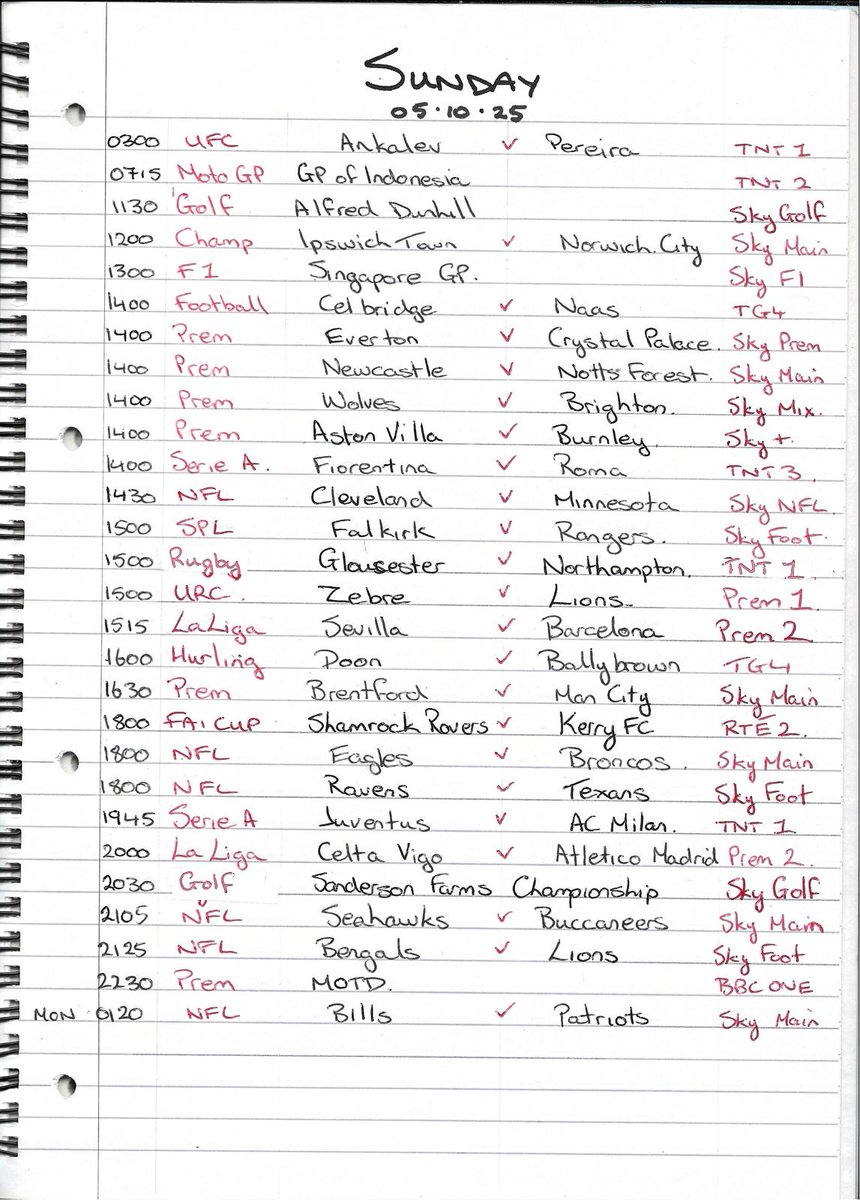 SUNDAY
05·10·25
0300 UFC Ankalev v Pereira TNT 1
0715 Moto GP GP of Indonesia TNT 2
1130 Golf Alfred Dunhill Sky Golf
1200 Champ Ipswich Town v Norwich City Sky Main
1300 F1 Singapore GP. Sky F1
1400 Football Celbridge v Naas TG4
1400 Prem Everton v Crystal Palace. Sky Prem
1400 Prem Newcastle v Notts Forest. Sky Main
1400 Prem Wolves v Brighton. Sky Mix.
1400 Prem Aston Villa v Burnley. Sky +.
1400 Serie A. Fiorentina v Roma TNT 3.
1430 NFL Cleveland v Minnesota Sky NFL.
1500 SPL Falkirk v Rangers. Sky Foot.
1500 Rugby Glousester v Northampton. TNT 1.
1500 URC. Zebre v Lions. Prem 1.
1515 LaLiga Sevilla v Barcelona Prem 2
1600 Hurling Doon v Ballybrown TG4
1630 Prem Brentford v Man City Sky Main
1800 FAI CUP Shamrock Rovers v Kerry FC RTÉ 2.
1800 NFL Eagles v Broncos. Sky Main
1800 NFL Ravens v Texans Sky Foot
1945 Serie A Juventus v AC Milan. TNT 1
2000 La Liga Celta Vigo v Atletico Madrid Prem 2.
2030 Golf Sanderson Farms Championship Sky Golf
2105 NFL Seahawks v Buccaneers Sky Main
2125 NFL Bengals v Lions Sky Foot
2230 Prem MOTD. BBC ONE
MON 0120 NFL Bills v Patriots Sky Main